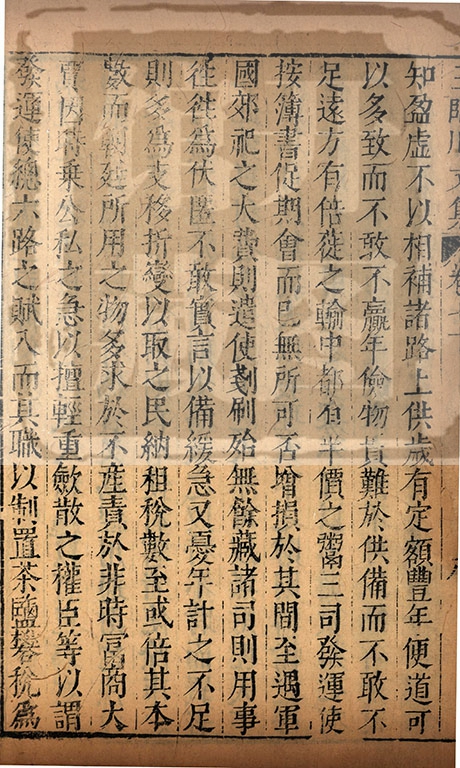 王臨川文集 卷七十
知盈虛不以相補諸路上供歲有定額豐年便道可
以多致而不敢不贏年儉物貴難於供備而不敢不
足遠方有倍蓰之輸中都有半價之鬻三司發運使
按簿書促期會而已無所可否增損於其間至遇軍
國郊祀之大費則遣使剗刷殆無餘藏諸司則用事
往往為伏匿不敢實言以備緩急又憂年計之不足
則多為支移折變以取之民納租稅數至或倍其本
數而朝廷所用之物多求於不産責於非時富商大
賈因時乗公私之急以擅輕重歛散之權臣等以謂
發運使總六路之賦入而其職以制置茶鹽礬稅為